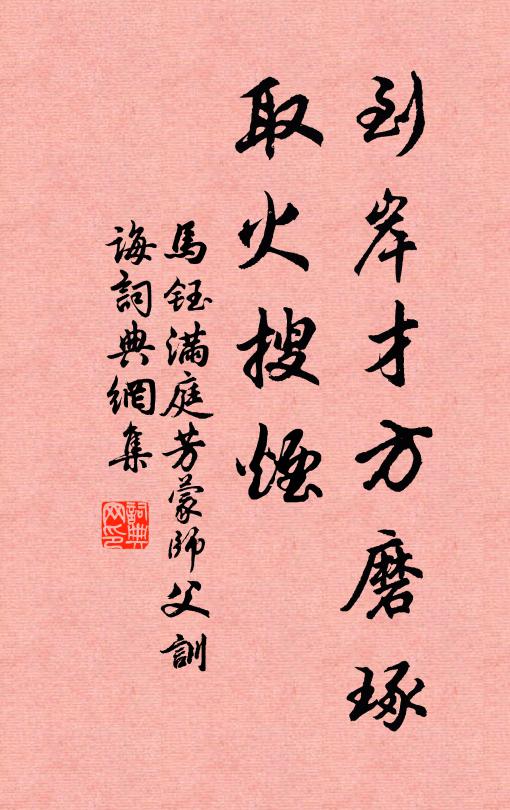 到岸才方磨琢
取火搜煙
馬鈺滿庭芳蒙師父訓
誨詞典網集
詞典网印